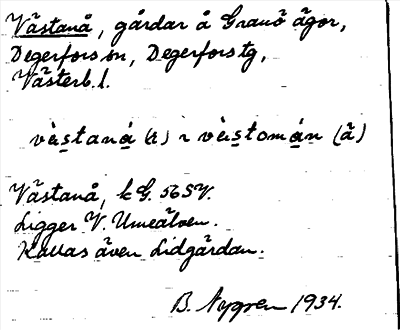 Västanå, gårdar å Granö ägor,
Degerfors sn, Degerfors tg,
Västerb. l.
vèstaná (ɛ) ~ vèstomán (ã)
Västanå, k G. 56 SV.
Ligger V. Umeälven.
Kallas även Lidgårdan.
B. Nygren 1934.